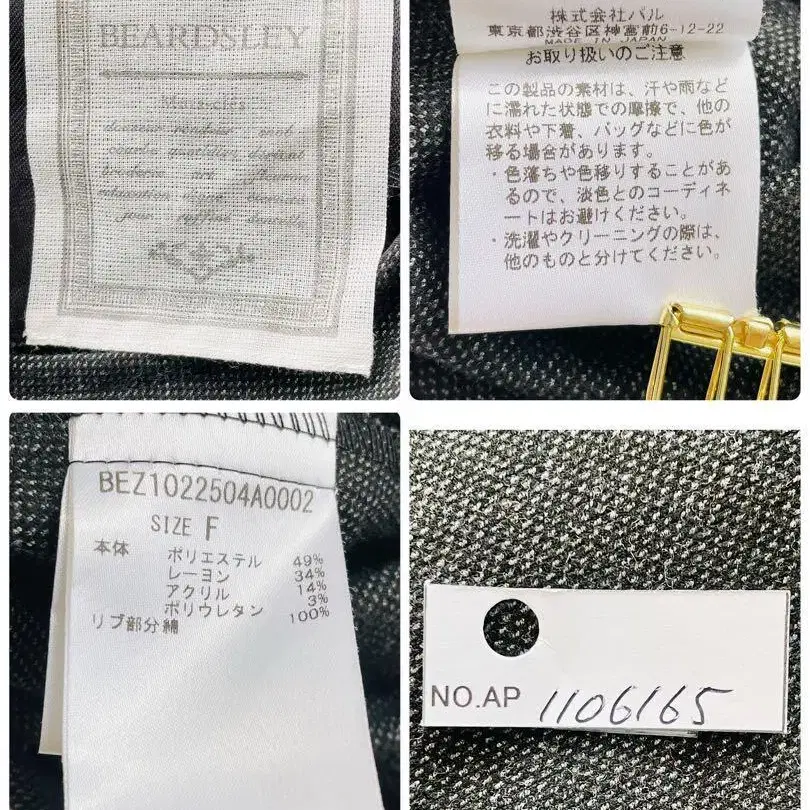 BEARDSLEY
株式会社パル
東京都渋谷区神宮前6-12-22
MADE IN JAPAN
お取り扱いのご注意
この製品の素材は、汗や雨など
に濡れた状態での摩擦で、他の
衣料や下着、バッグなどに色が
移る場合があります。
・色落ちや色移りすることがあ
るので、淡色とのコーディネ
ートはお避けください。
・洗濯やクリーニングの際は、
他のものと分けてください。
BEZ1022504A0002
SIZE F
本体 ポリエステル 49%
レーヨン 34%
アクリル 14%
ポリウレタン 3%
リブ部分綿 100%
NO.AP 1106165